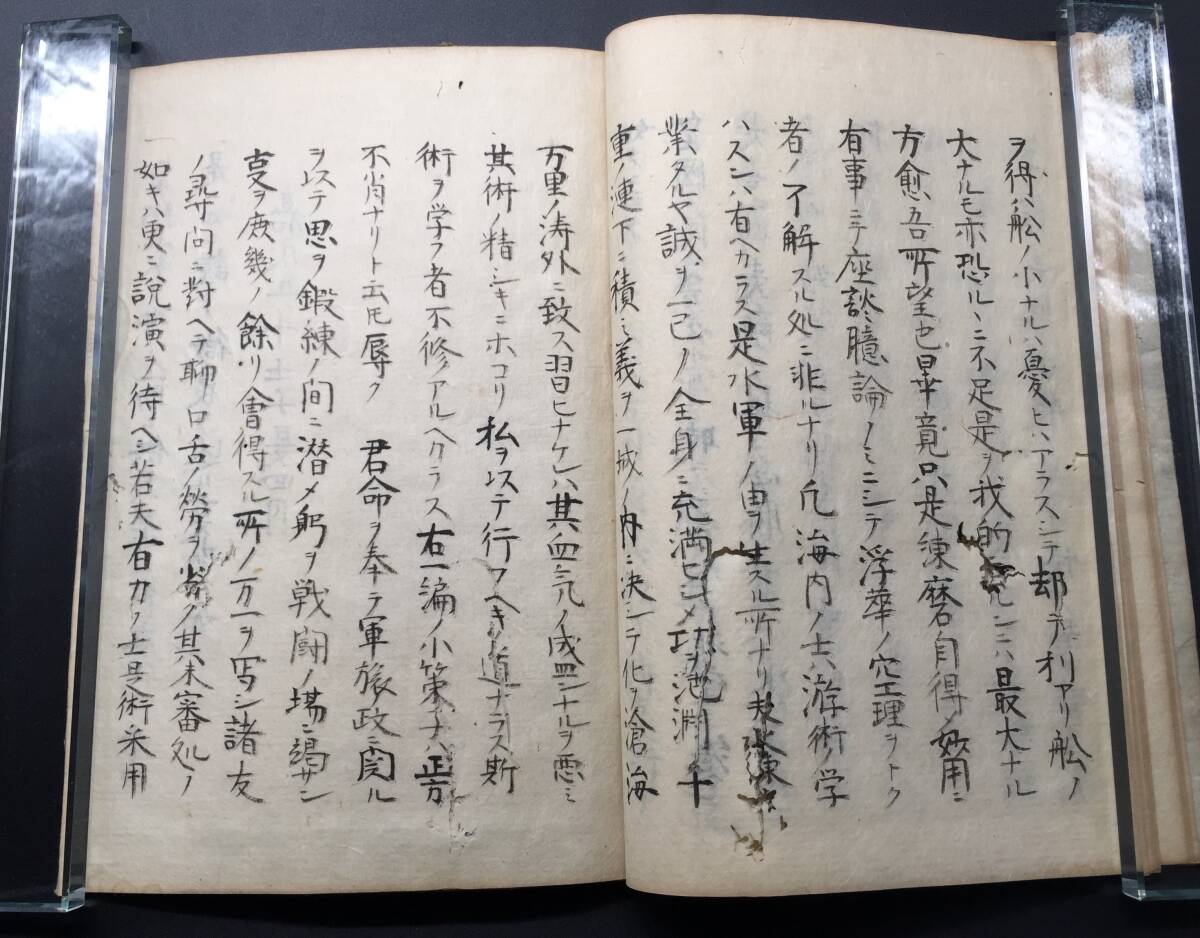 ヲ得ハ舩ノ小ナルハ憂ヒハアラスシテ却テ利アリ舩ノ
大ナルモ亦恐ルヽニ不足是ヲ我的 ンニハ最大ナル
方愈吾所望也畢竟只是練磨自得ノ妙用ニ
有事ニテ座談臆論ノミニシテ浮華ノ穴工理ヲトク
者ノ了解スル処ニ非ルナリ凡海内ノ士ハ游術ノ学
ハスンハ有ヘカラス是水軍ノ由ヲ生スル所ナリ 水練
業タルヤ誠ヲ一己ノ全身ニ充満セシメ功ヲ池渕ノ十
重ノ漣下ニ積ミ義ヲ一城ノ内ニ決シテ化ヲ滄海
万里ノ涛外ニ致ス習ヒナケレハ其血気ノ盛ンナルヲ悪ミ
其術ノ精シキニホコリ私ヲ以テ行フヘキノ道ナラス斯
術ヲ学フ者不修アルヘカラス右一編ノ小策ナハ正方
不肖ナリト云モ辱ク 君命ヲ奉テ軍旅政ニ関ル
ヲ以テ思ヲ鍛練ノ間ニ潜メ躬ヲ戦闘ノ場ニ竭サン
支ヲ庶幾ノ餘リ會得スル所ノ万一ヲ写シ諸友
ノ尋問ニ對ヘテ聊口舌ノ勞ヲ ノ其未審処ノ
如キハ更ニ説演ヲ待ヘシ若夫有力ノ士是術采用